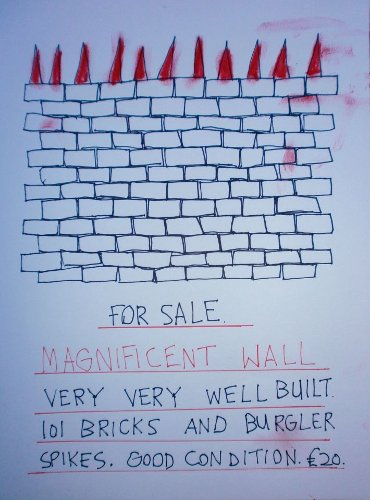 FOR SALE.
MAGNIFICENT WALL
VERY VERY WELL BUILT.
101 BRICKS AND BURGLER
SPIKES. GOOD CONDITION. £20.